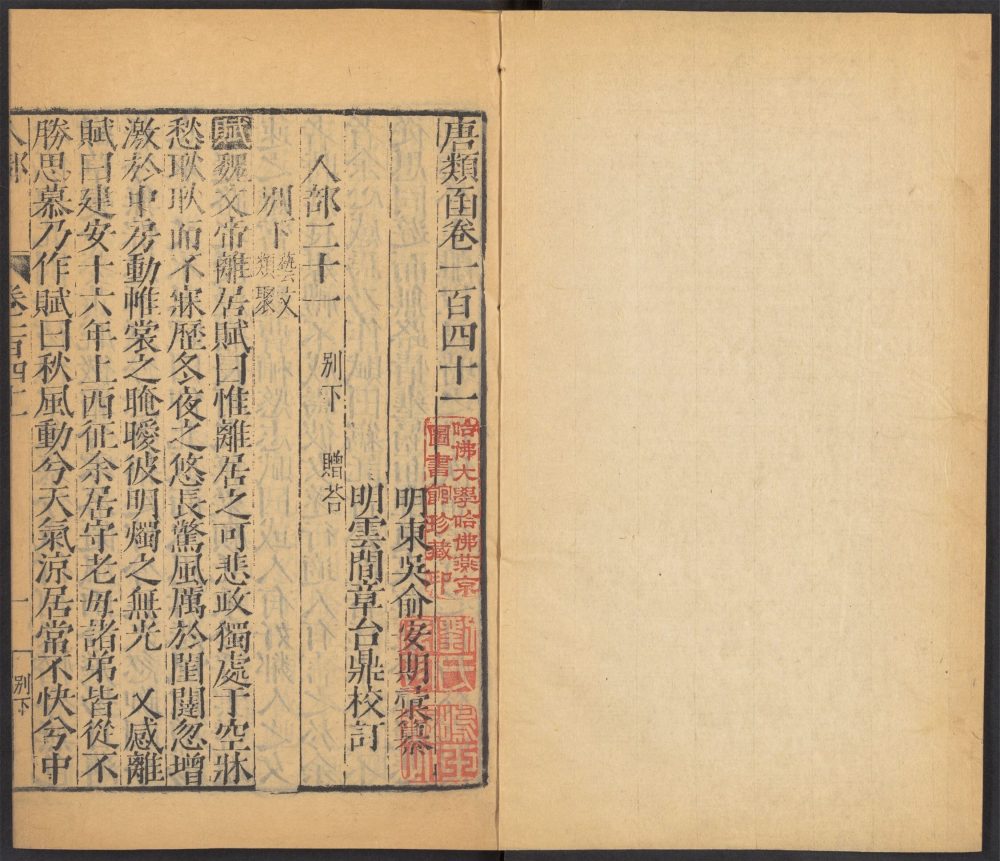 唐類函卷一百四十一
明東吳俞安期彙纂
明雲間章台鼎校訂
人部二十一 別下 贈荅
別下 藝文類聚
賦魏文帝離居賦曰惟離居之可悲政獨處于空牀
愁耿耿而不寐歷冬夜之悠長驚風厲於閨闥忽增
激於中房動帷裳之晻曖彼明燭之無光 又感離
賦曰建安十六年上西征余居守老母諸弟皆從不
勝思慕乃作賦曰秋風動兮天氣涼居常不快兮中
人部 卷一百四十一 一 別下
哈佛大學哈佛燕京
圖書館珍藏印